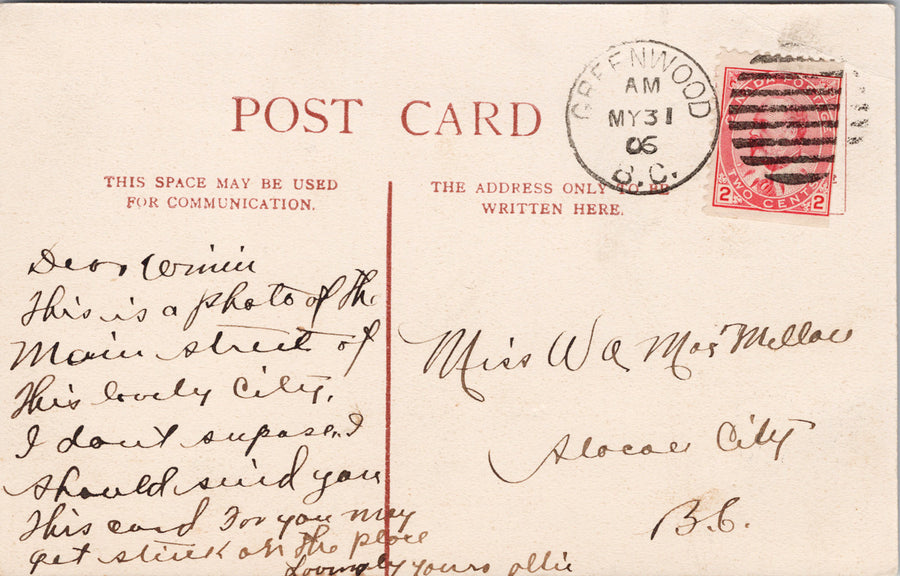 POST CARD
GREENWOOD
AM
MY 31
06
B.C.
CANADA POSTAGE
TWO CENTS
2 2
THIS SPACE MAY BE USED
FOR COMMUNICATION.
THE ADDRESS ONLY TO BE
WRITTEN HERE.
Dear Winnie
This is a photo of the
Main street of
this lovely City.
I dont supose I
should send you
this card for you may
get stuck on the place
Lovingly yours Ollie
Miss W A
Slocan City
B.C.